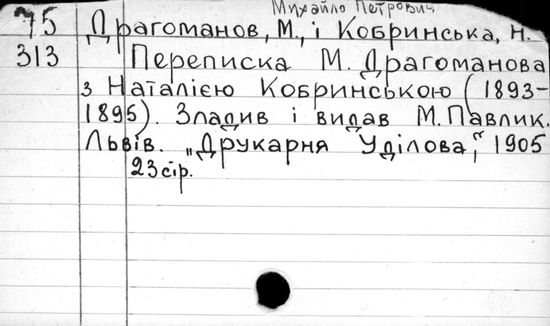 Михайло Петрович
75 Драгоманов, М., і Кобринська, Н.
313 Переписка М. Драгоманова
з Наталією Кобринською (1893-
1895). Зладив і видав М. Павлик.
Львів. „Друкарня Уділова," 1905
23 стр.